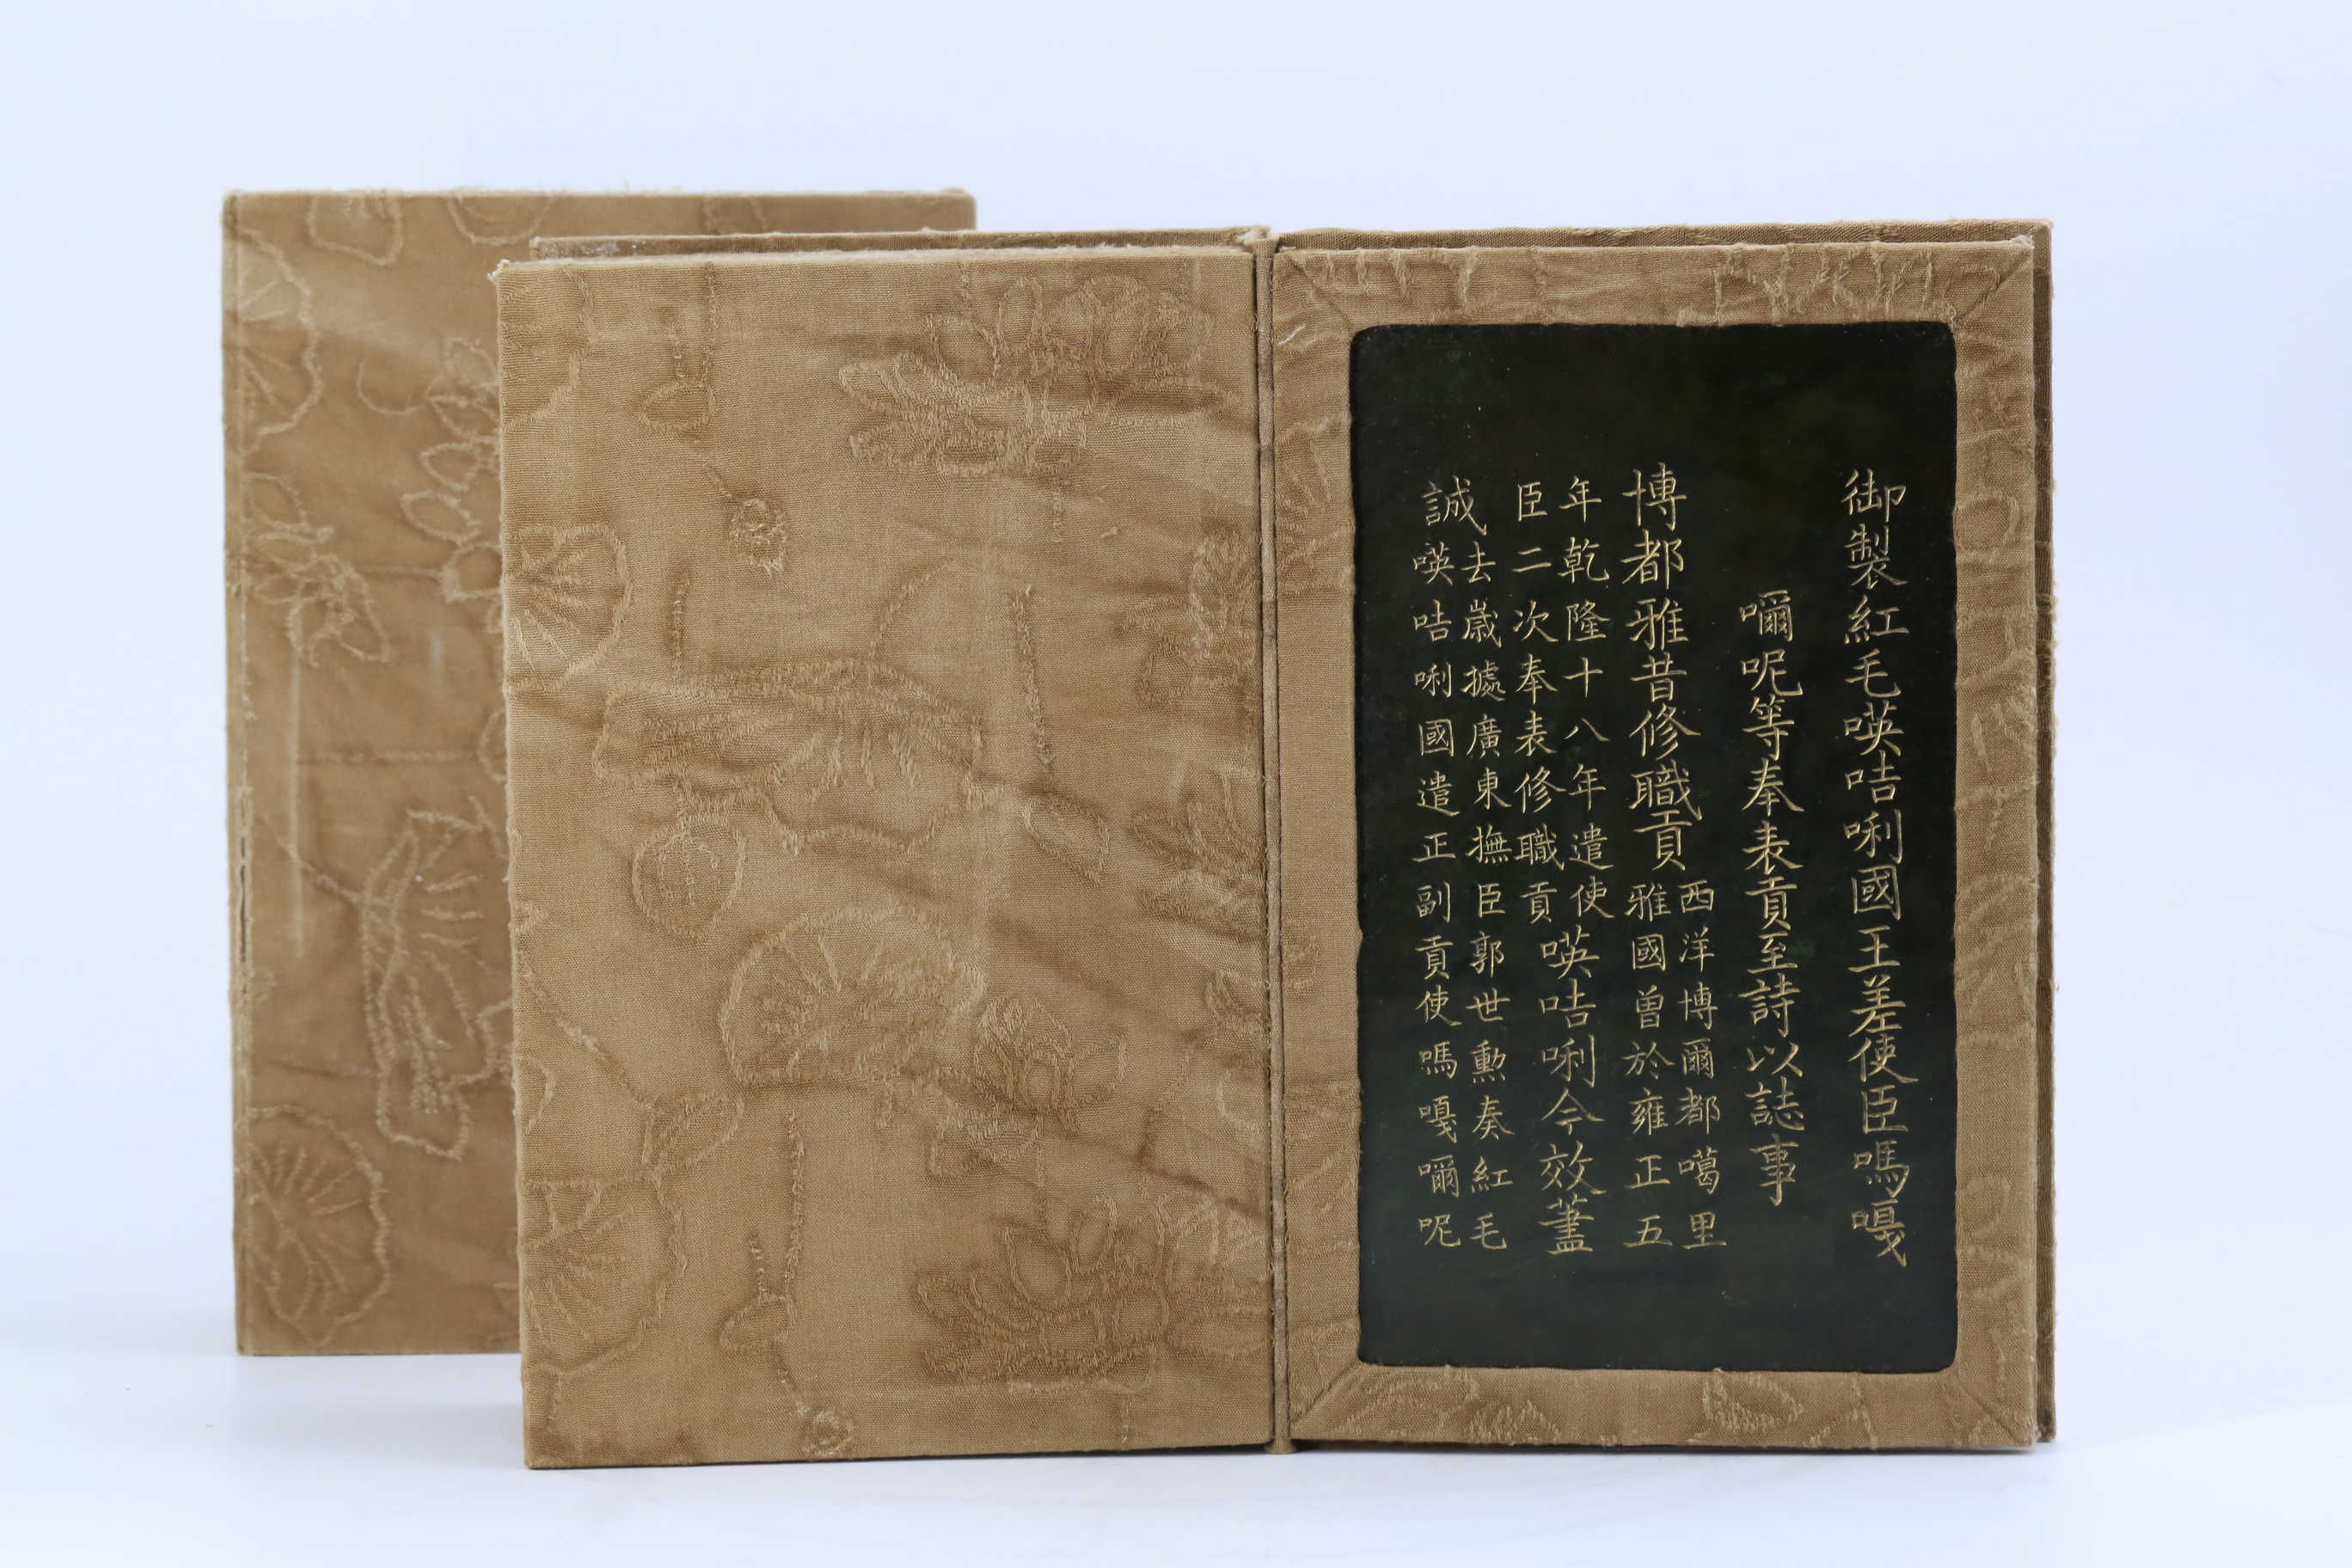 御製紅毛𠸄咭唎國王差使臣嗎嘎
爾呢等奉表貢至詩以誌事
博都雅昔修職貢西洋博爾都噶里
雅國曾於雍正五
年乾隆十八年遣使
臣二次奉表修職貢𠸄咭唎今效藎
誠去歲據廣東撫臣郭世勳奏紅毛
𠸄咭唎國遣正副貢使嗎嘎爾呢